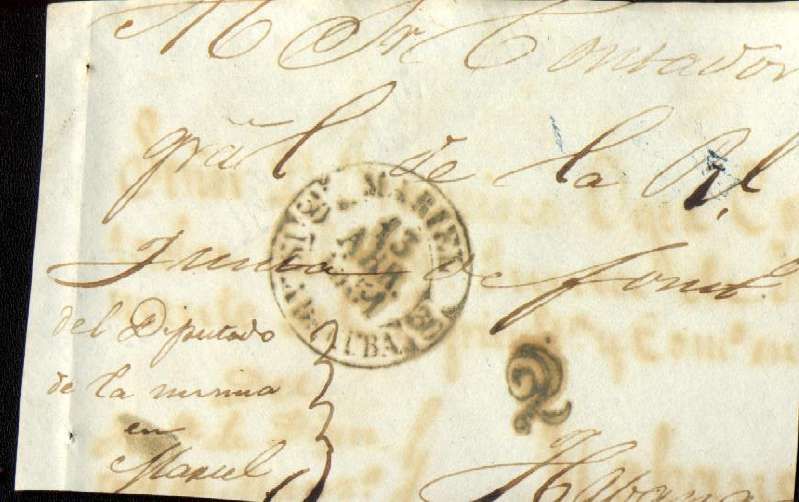 Al Sr Contador
gral de la Rl
Junta de fomto
del Diputado
de la misma
en
Mariel
Habana
MARIEL
13
ABR
CUBA
R